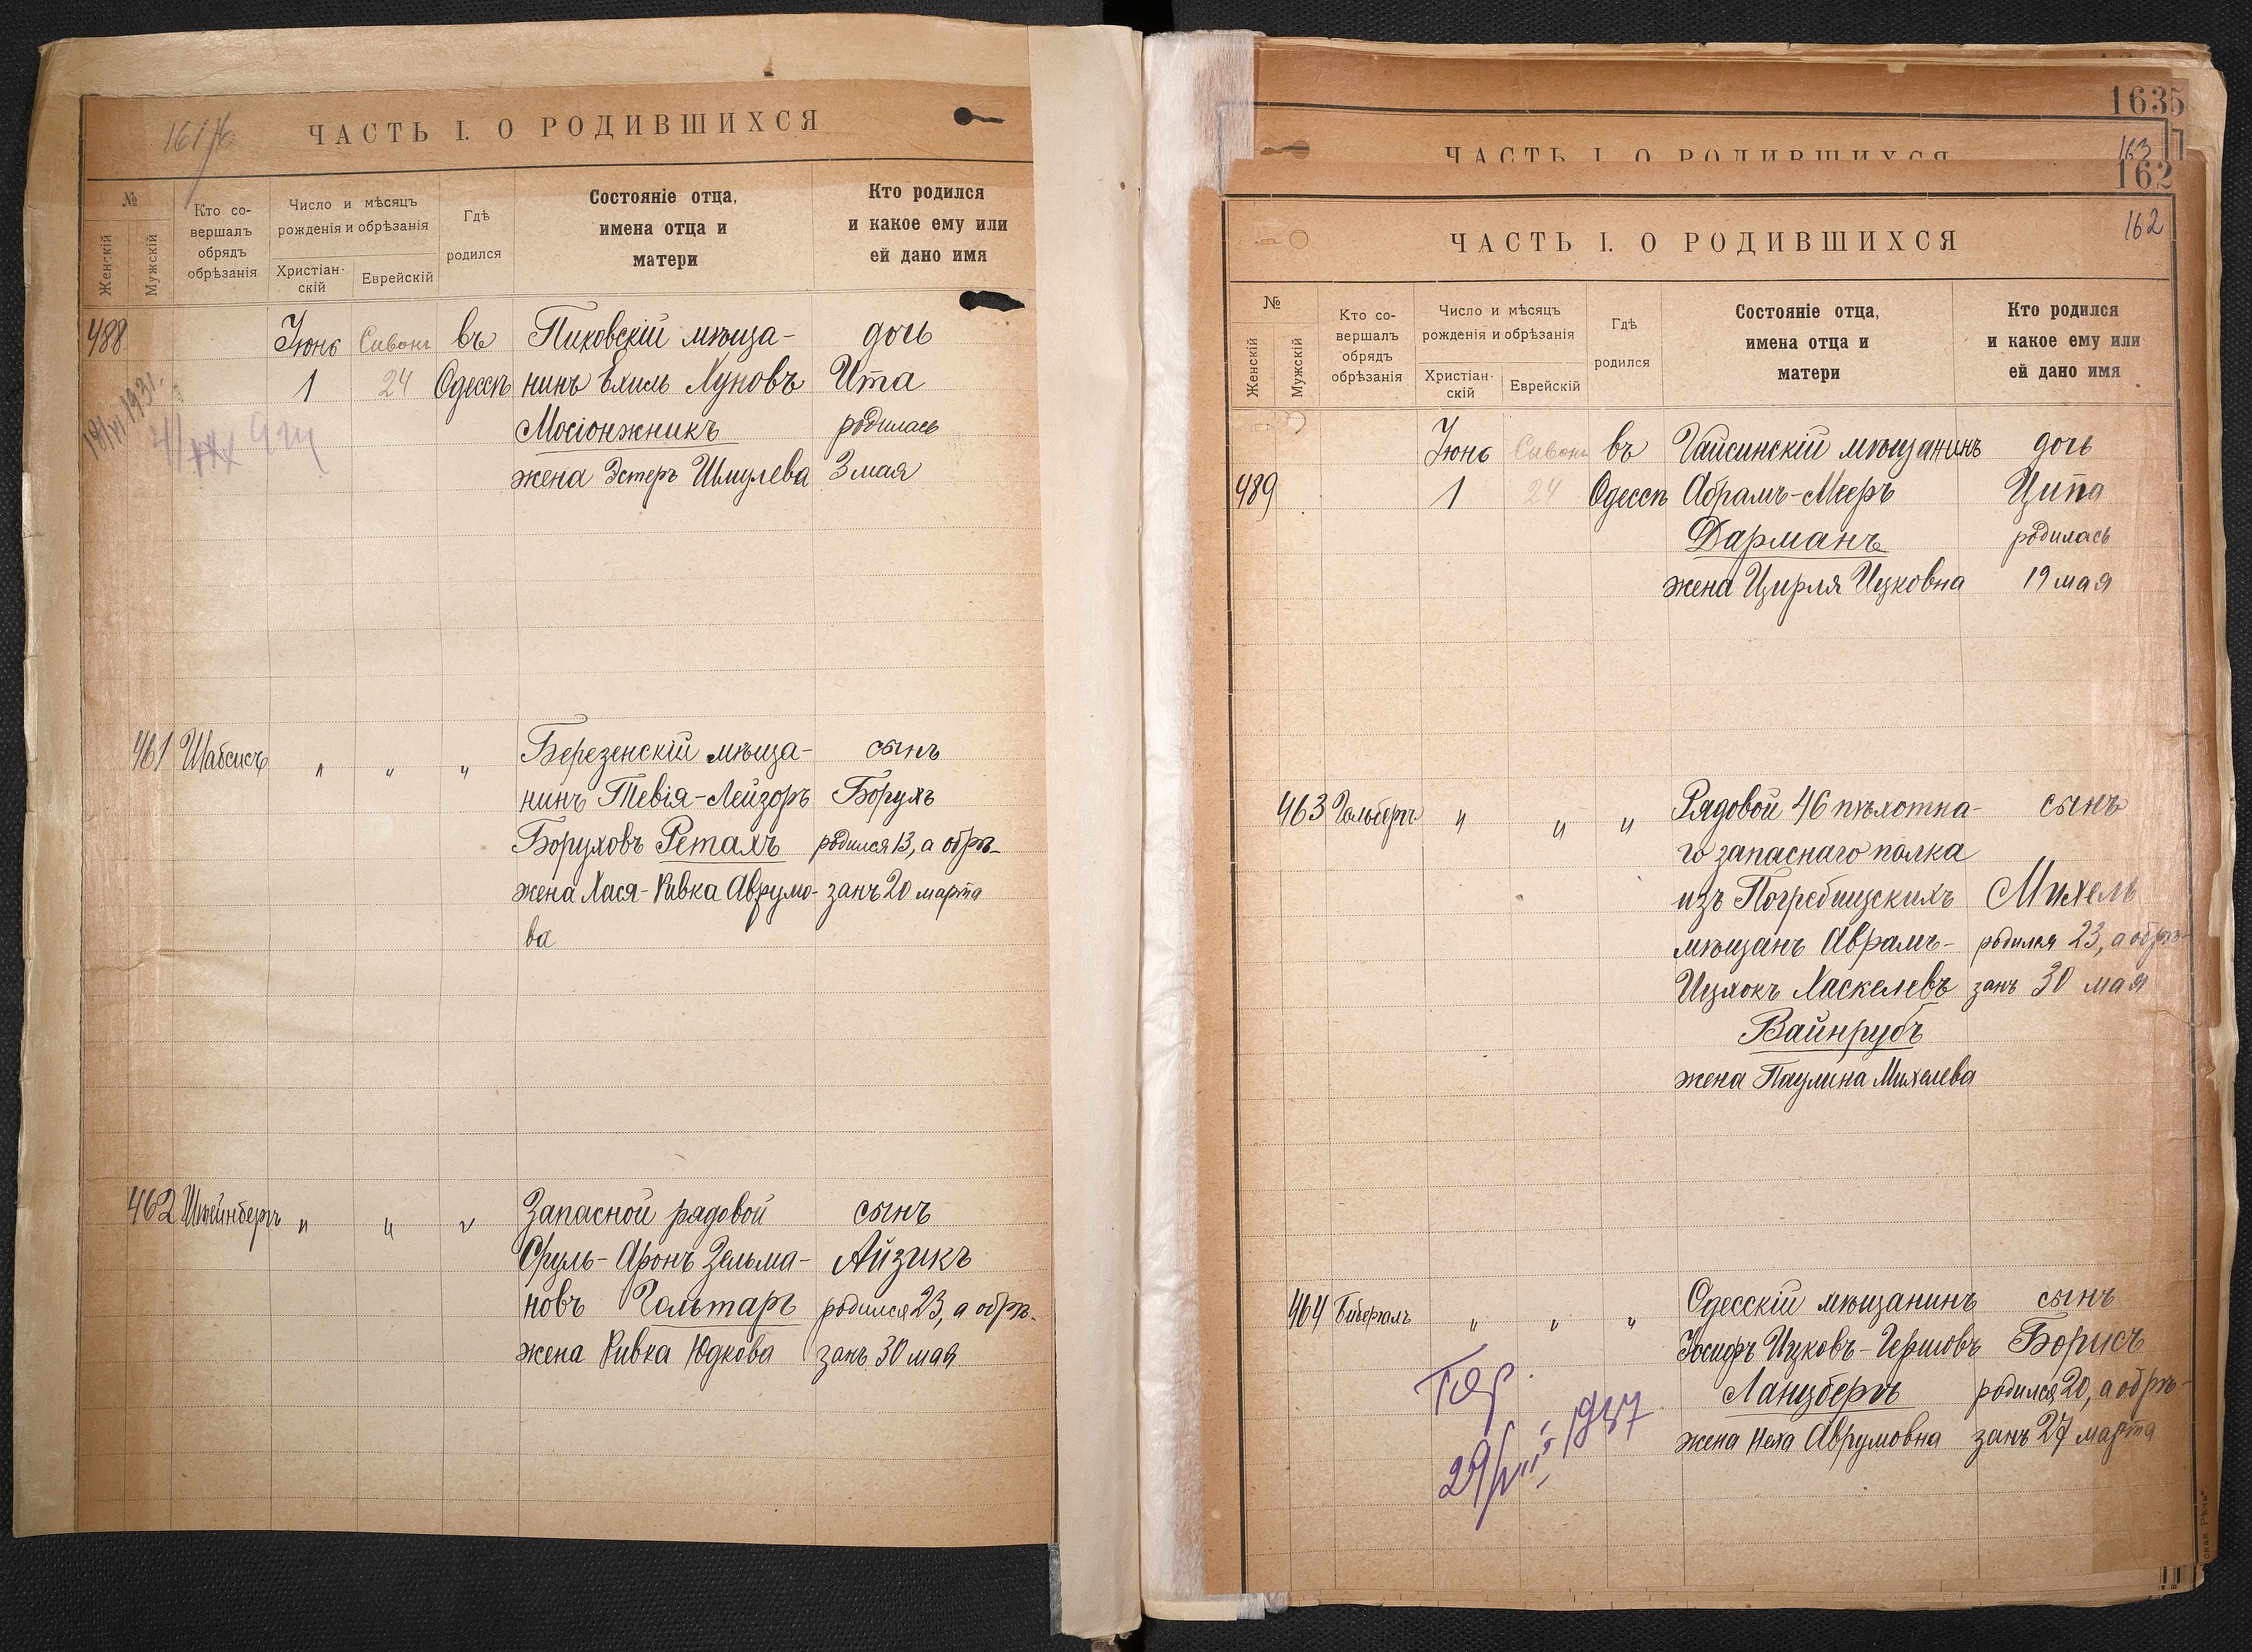 161/б
ЧАСТЬ I. О РОДИВШИХСЯ
№
Женскій
Мужскій
Кто со-
вершалъ
обрядъ
обрѣзанія
Число и мѣсяцъ
рожденія и обрѣзанія
Христіан-
скій
Еврейскій
Гдѣ
родился
Состояніе отца,
имена отца и
матери
Кто родился
и какое ему или
ей дано имя
488 Іюнь Сивонъ въ Пиковскій мѣща- дочь
1 24 Одессѣ нинъ Ехиль Луновъ Ита
Мосіонжникъ родилась
жена Эстеръ Шмулева 3 мая
461 Шабсисъ " " " Березенскій мѣща- сынъ
нинъ Тевія-Лейзоръ Борухъ
Боруховъ Ретахъ родился 13, а обрѣ-
жена Хася-Ривка Аврумо- занъ 20 марта
ва
462 Штейнбергъ " " " Запасной рядовой сынъ
Сруль-Аронъ Зельма- Айзикъ
новъ Гольтаръ родился 23, а обрѣ-
жена Ривка Юдкова занъ 30 мая
1635
163
ЧАСТЬ I. О РОДИВШИХСЯ
162
162
ЧАСТЬ I. О РОДИВШИХСЯ
№
Женскій
Мужскій
Кто со-
вершалъ
обрядъ
обрѣзанія
Число и мѣсяцъ
рожденія и обрѣзанія
Христіан-
скій
Еврейскій
Гдѣ
родился
Состояніе отца,
имена отца и
матери
Кто родился
и какое ему или
ей дано имя
Іюнь Сивонъ въ Гайсинскій мѣщанинъ дочь
489 1 24 Одессѣ Абрамъ-Мееръ Ципа
Дарманъ родилась
жена Цирля Ицковна 19 мая
463 Гольбергъ " " " Рядовой 46 пѣхотна- сынъ
го запаснаго полка
изъ Погребищскихъ Михель
мѣщанъ Аврамъ- родился 23, а обрѣ-
Ицхокъ Хаскелевъ занъ 30 мая
Вайнрубъ
жена Паулина Михелева
464 " " " Одесскій мѣщанинъ сынъ
Іосифъ Ицковъ-Гершовъ Борисъ
Ланцбергъ родился 20, а обрѣ-
жена Неха Аврумовна занъ 27 марта
29/VIII 1937